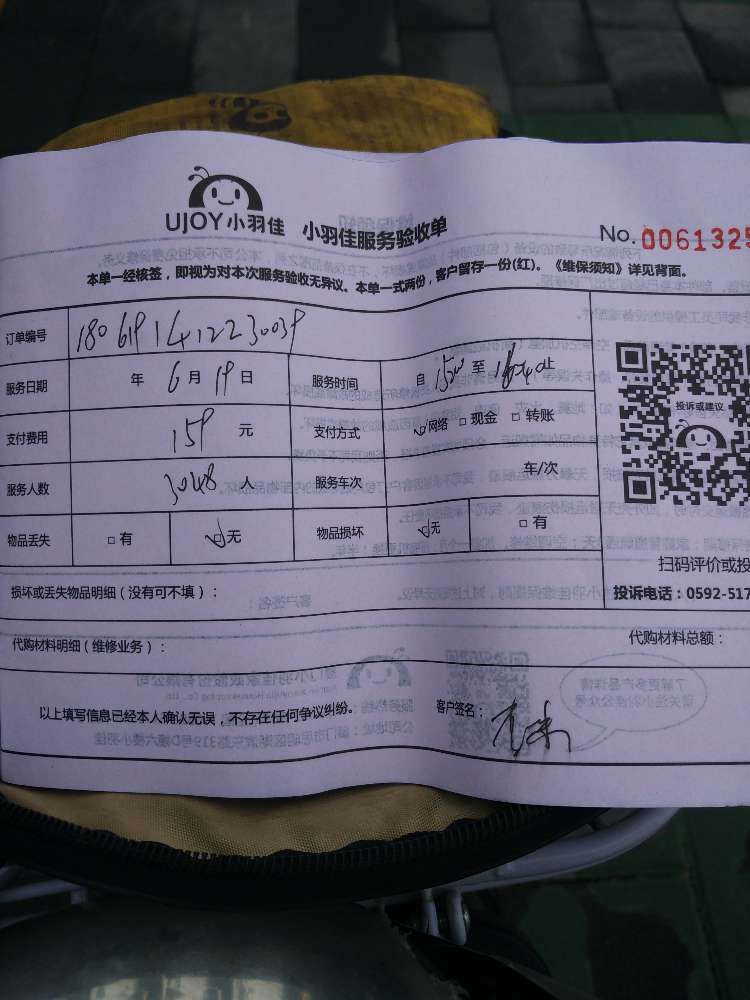 UJOY小羽佳 小羽佳服务验收单 No. 0061325
本单一经核签，即视为对本次服务验收无异议。本单一式两份，客户留存一份(红)。《维保须知》详见背面。
订单编号 1806191412230039
服务日期 年 6 月 19 日 服务时间 自 1500 至 止
支付费用 159 元 支付方式 网络 □ 现金 □ 转账
服务人数 3048 人 服务车次 车/次
物品丢失 □ 有 无 物品损坏 无 □ 有
投诉或建议
扫码评价或投
投诉电话：0592-517
损坏或丢失物品明细（没有可不填）：
代购材料明细（维修业务）： 代购材料总额：
以上填写信息已经本人确认无误，不存在任何争议纠纷。 客户签名：